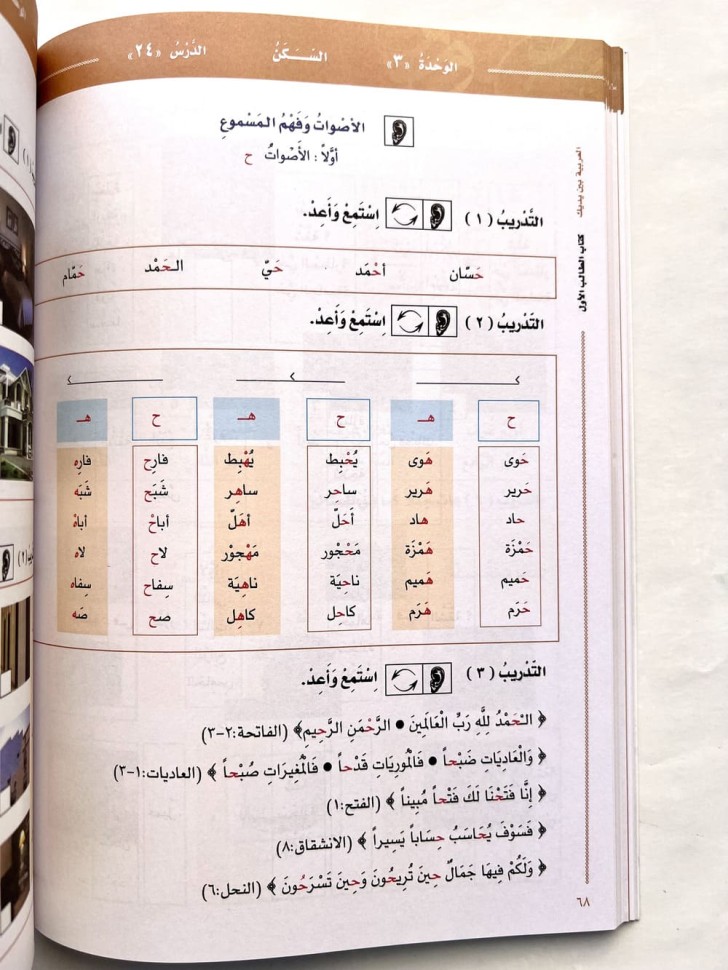 الوَحْدَةُ «٣» السَـــكَنُ الدَّرْسُ «٢٤»
الأصْواتُ وَفَهْمُ المَسْموعِ
أوَّلاً: الأَصْواتُ ح
التَّدْريبُ (١) اِسْتَمِعْ وَأَعِدْ.
حَسّان أحْمَد حَيّ الـحَمْد حَمّام
التَّدْريبُ (٢) اِسْتَمِعْ وَأَعِدْ.
ح هـ ح هـ ح هـ
حَوى هَوى يُحْبِط يُهْبِط فارِح فارِه
حَرير هَرير ساحِر ساهِر شَبَح شَبَه
حاد هاد أَحَلّ أهَلّ أباحْ أباهْ
حَمْزَة هَمْزَة مَحْجور مَهْجوْر لاح لاه
حَميم هَميم ناحِيَة ناهِيَة سِفاح سِفاه
حَرَم هَرَم كاحِل كاهِل صح صَه
التَّدْريبُ (٣) اِسْتَمِعْ وَأَعِدْ.
﴿ الـْحَمْدُ للَّهِ رَبِّ الْعَالَمِينَ ● الرَّحْمَنِ الرَّحِيمِ﴾ (الفاتحة:٢-٣)
﴿ وَالْعَادِيَاتِ ضَبْحاً ● فَالْمُورِيَاتِ قَدْحاً ● فَالْمُغِيرَاتِ صُبْحاً ﴾ (العاديات:١-٣)
﴿ إِنَّا فَتَحْنَا لَكَ فَتْحاً مُبِيناً ﴾ (الفتح:١)
﴿ فَسَوْفَ يُحَاسَبُ حِسَاباً يَسِيراً ﴾ (الانشقاق:٨)
﴿ وَلَكُمْ فِيهَا جَمَالٌ حِينَ تُرِيحُونَ وَحِينَ تَسْرَحُونَ ﴾ (النحل:٦)
٦٨
العربية بين يديك كتاب الطالب الأول
(١)
(٢)